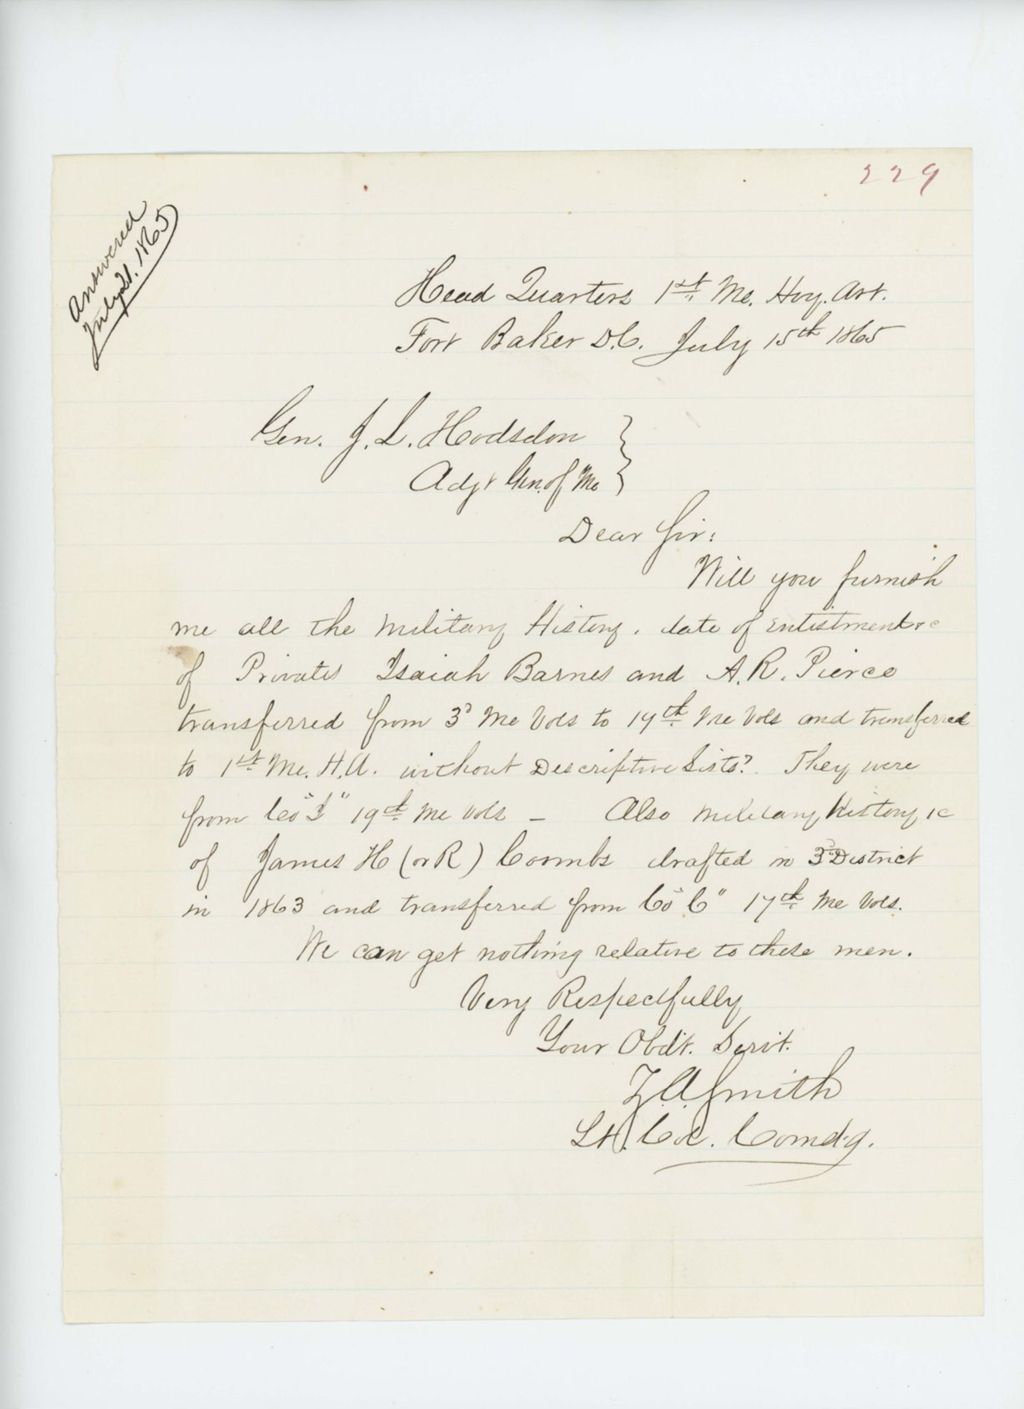 229
Answered
July 21. 1865
Head Quarters 1st Me. Hvy. Art.
Fort Baker D.C. July 15th 1865
Gen. J. L. Hodsdon
Adjt Gen. of Me
Dear Sir:
Will you furnish
me all the Military History. date of Enlistment &c
of Privates Isaiah Barnes and A. R. Pierce
transferred from 3d Me Vols to 17th Me Vols and transferred
to 1st Me. H.A. without Descriptive Lists? They were
from Co "I" 19th Me Vols – Also Military History &c
of James H (or R) Coombs drafted in 3d District
in 1863 and transferred from Co "C" 17th Me Vols.
We can get nothing relative to these men.
Very Respectfully
Your Obdt. Servt.
Z. A. Smith
Lt. Col. Comdg.